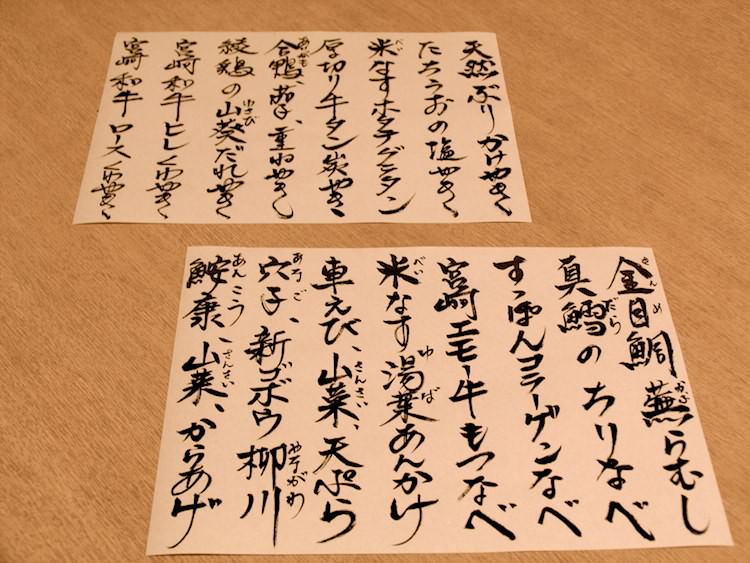 天然ぶりかけやき
たちうおの塩やき
米なすホタテグラタン
厚切り牛タン炭やき
合鴨、茄子、重ねやき
綾鶏の山葵だれやき
宮崎和牛ヒレくわやき
宮崎和牛ロースくわやき
金目鯛 蕪らむし
真鱈のちりなべ
すっぽんコラーゲンなべ
宮崎エモー牛もつなべ
米なす湯葉あんかけ
車えび、山菜、天ぷら
穴子、新ゴボウ 柳川
鮟康、山菜、からあげ